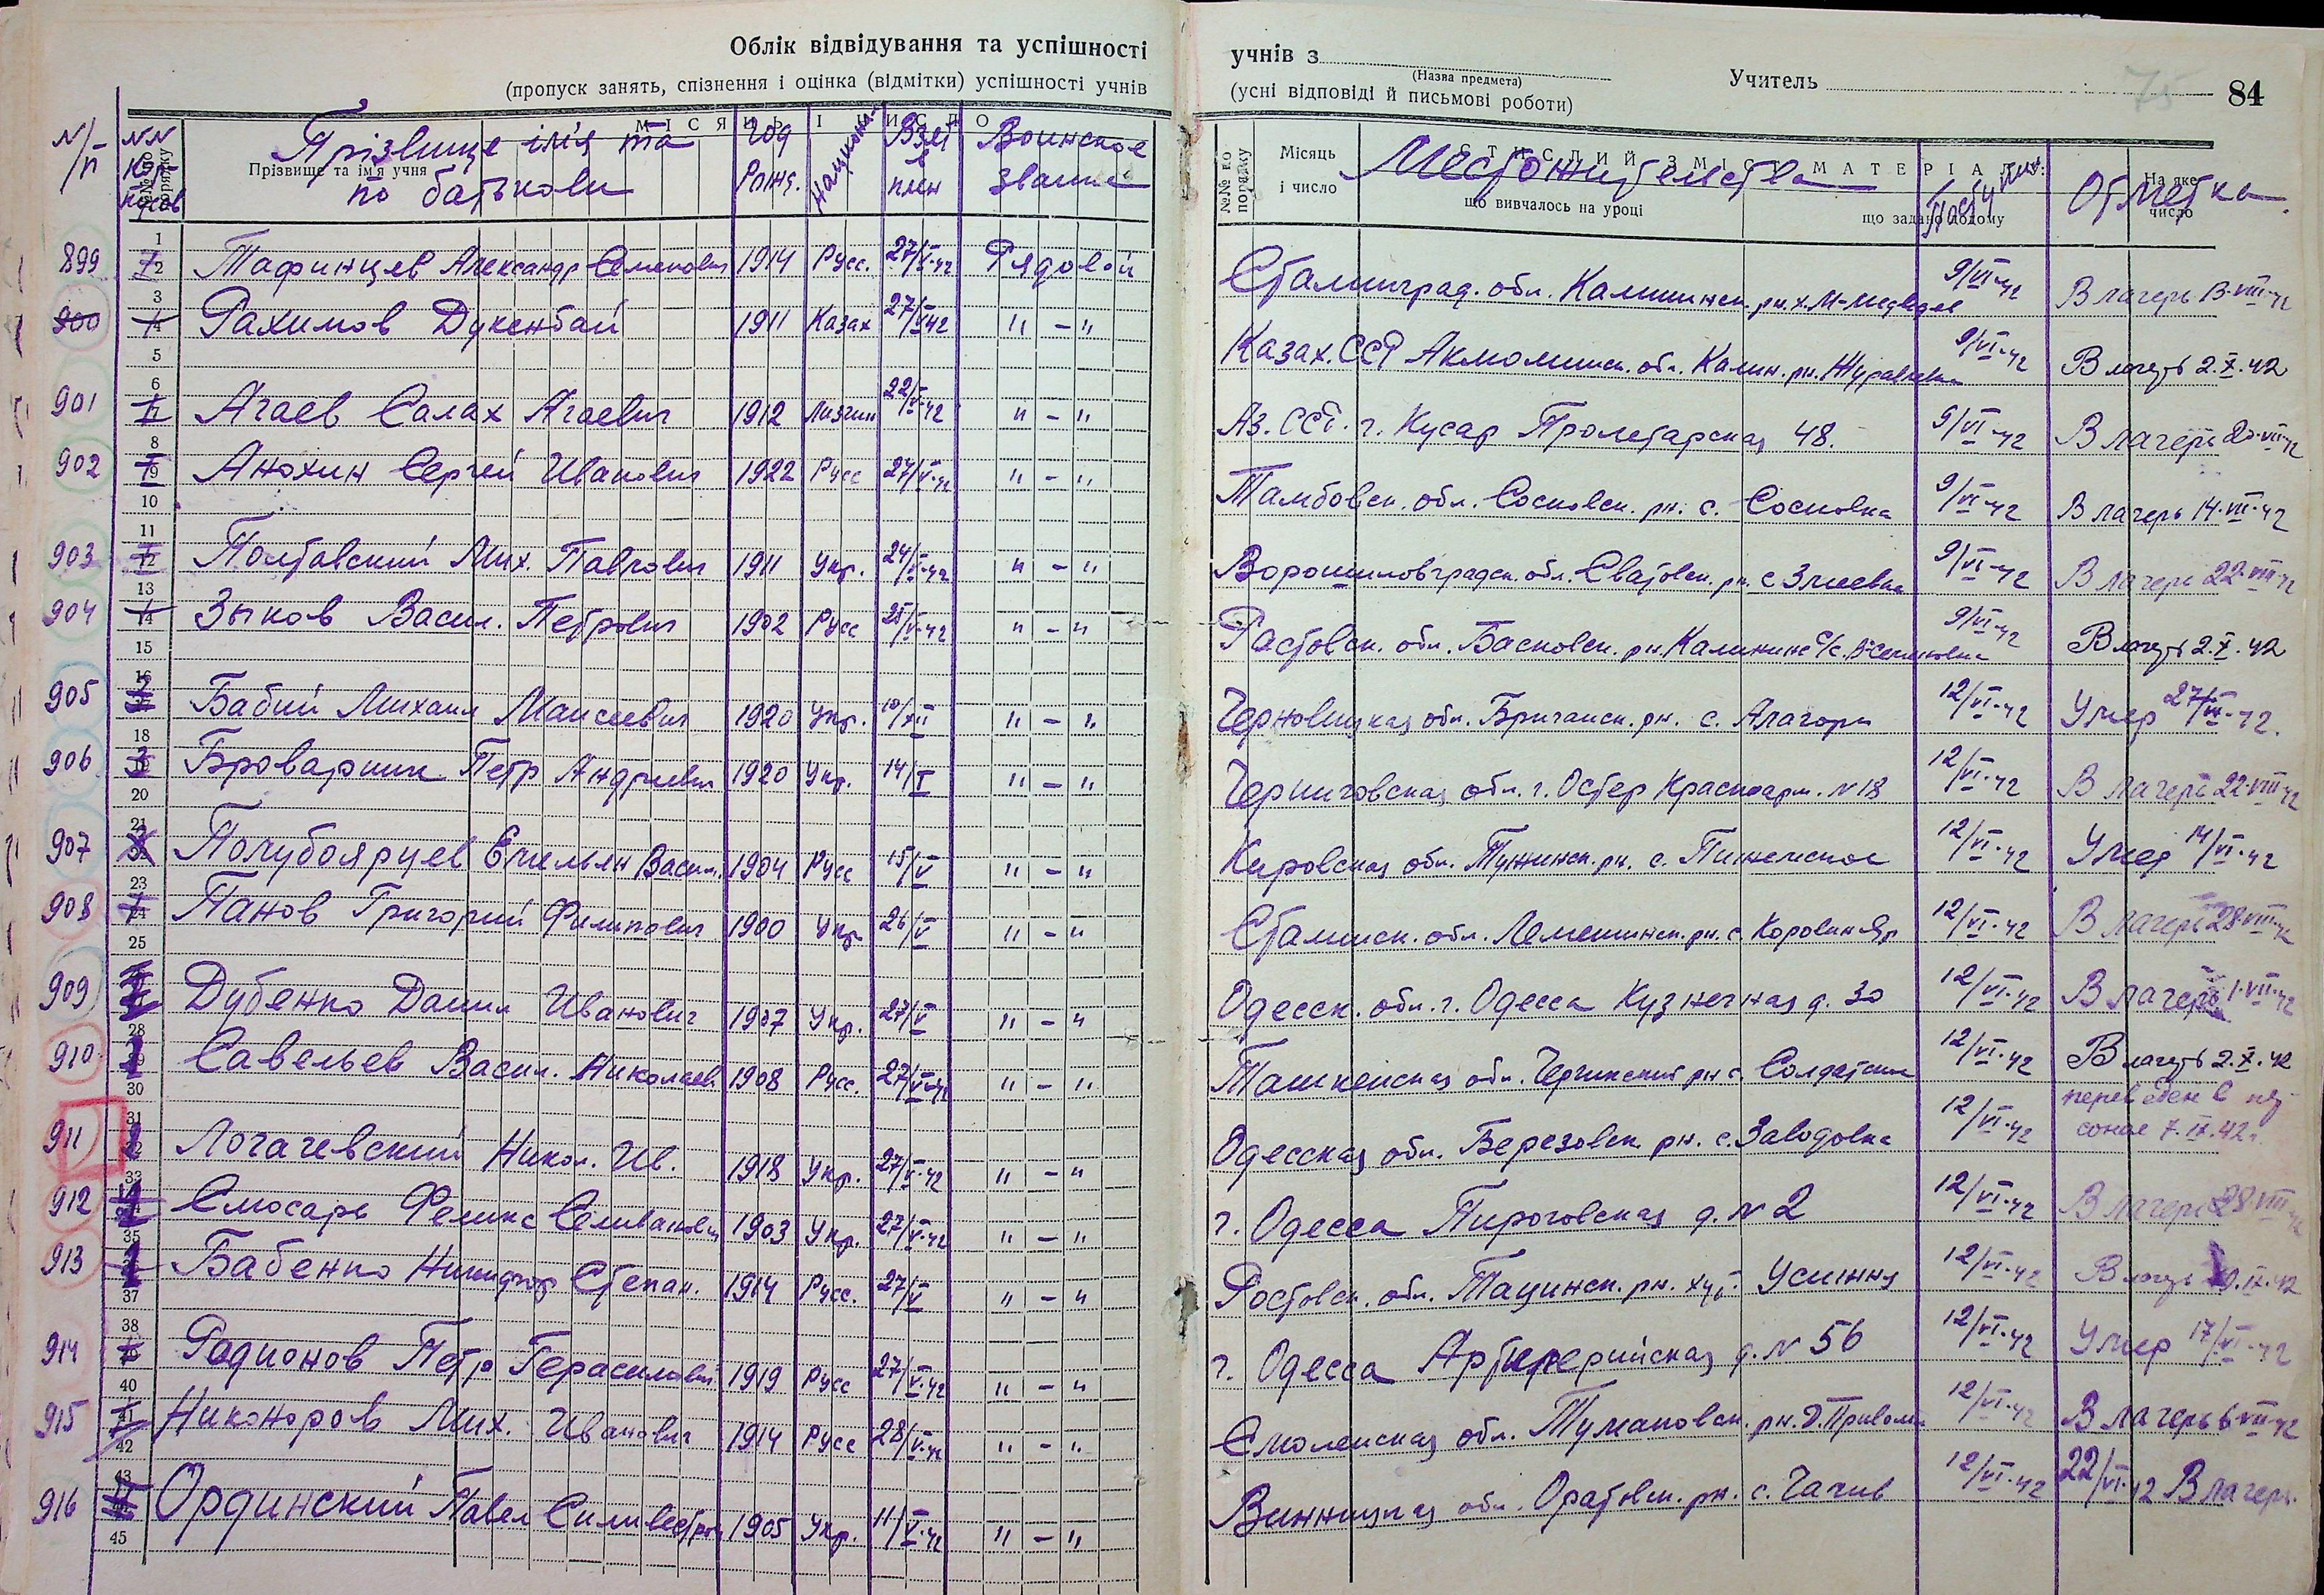 Облік відвідування та успішності учнів з (Назва предмета) Учитель 84
(пропуск занять, спізнення і оцінка (відмітки) успішності учнів (усні відповіді й письмові роботи)
Прізвище ім'я та по батькови Год рожд. Национ. Взят в плен Воинское звание Местожительства Поступил: Отметка
Прізвище та ім'я учня МІСЯЦЬ І ЧИСЛО
№№ по порядку Місяць і число СТИСЛИЙ ЗМІСТ МАТЕРІАЛ що вивчалось на уроці що задано додому На яке число
899 Тафинцев Александр Семенович 1914 Русс. 27/V-42 Рядовой Сталинград. обл. Калининск. рн. х. М-Медведев 9/VI-42 В лагерь 13-VIII-42
900 Рахимов Дукенбай 1911 Казах 27/V-42 "-" Казах. ССР Акмолинск. обл. Калин. рн. Журавлевка 9/VI-42 В лагерь 2.X.42
901 Агаев Салах Агаевич 1912 Лизгин 22/V-42 "-" Аз. ССР. г. Кусар Пролетарская 48. 9/VI-42 В лагерь
902 Анохин Сергей Иванович 1922 Русс 27/V-42 "-" Тамбовск. обл. Сосновск. рн. с. Сосновка 9/VI-42 В лагерь 14-VII-42
903 Полтавский Мих. Павлович 1911 Укр. 24/V-42 "-" Ворошиловградск. обл. Сватовск. рн. с Змиевка 9/VI-42 В лагерь 22-VIII-42
904 Зыков Васил. Петрович 1902 Русс 25/V-42 "-" Ростовск. обл. Басковск. рн. Калининс С/с. 9/VI-42 В лагерь 2.X.42
905 Бабий Михаил Моисеевич 1920 Укр. 10/XII "-" Черновицкая обл. Бричанск. рн. с. Алагори 12/VI-42 Умер 42.
906 Броварник Петр Андриевич 1920 Укр. 14/I "-" Черниговская обл. г. Остер Красноарм. N 18 12/VI-42 В лагерь 22-VIII-42
907 Полубоярцев Емельян Васил. 1904 Русс 15/V "-" Кировская обл. Тужинск. рн. с. Пижемское 12/VI-42 Умер 14/VI-42
908 Панов Григорий Филипович 1900 Укр 26/V "-" Сталинск. обл. с. Коровин Яр 12/VI-42 В лагерь 28-VIII-42
909 Дубенко Данил Иванович 1907 Укр. 27/V "-" Одесск. обл. г. Одесса Кузнечная д. 30 12/VI-42 В лагерь 1-VII-42
910 Савельев Васил. Николаев. 1908 Русс. 27/V-42 "-" Ташкенская обл. Чирчикский рн с. Солдатское 12/VI-42 В лагерь 2.X.42
911 Логачевский Никол. Ив. 1918 Укр. 27/V-42 "-" Одесская обл. Березовск. рн. с. Заводовка 12/VI-42 переведен в пер-
сонал 7.IX.42г.
912 Слюсарь Феликс Селиванович 1903 Укр. 27/V-42 "-" г. Одесса Пироговская д. N 2 12/VI-42 В лагерь 28 VIII 42
913 Бабенко Никифор Степан. 1914 Русс. 27/V "-" Ростовск. обл. Тацинск. рн. хут. 12/VI-42 В лагерь
914 Родионов Петр Герасимович 1919 Русс 27/V-42 "-" г. Одесса Артилерийская д. N 56 12/VI-42 Умер 17/VI-42
915 Никоноров Мих. Иванович 1914 Русс 28/V-42 "-" Смоленская обл. Тумановск. рн. 12/VI-42 В лагерь 6-VII-42
916 Ординский Павел Силивестров 1905 Укр. 11/V-42 "-" Винницкая обл. Оратовск. рн. с. Чагив 12/VI-42 22/VI-42 В лагерь.